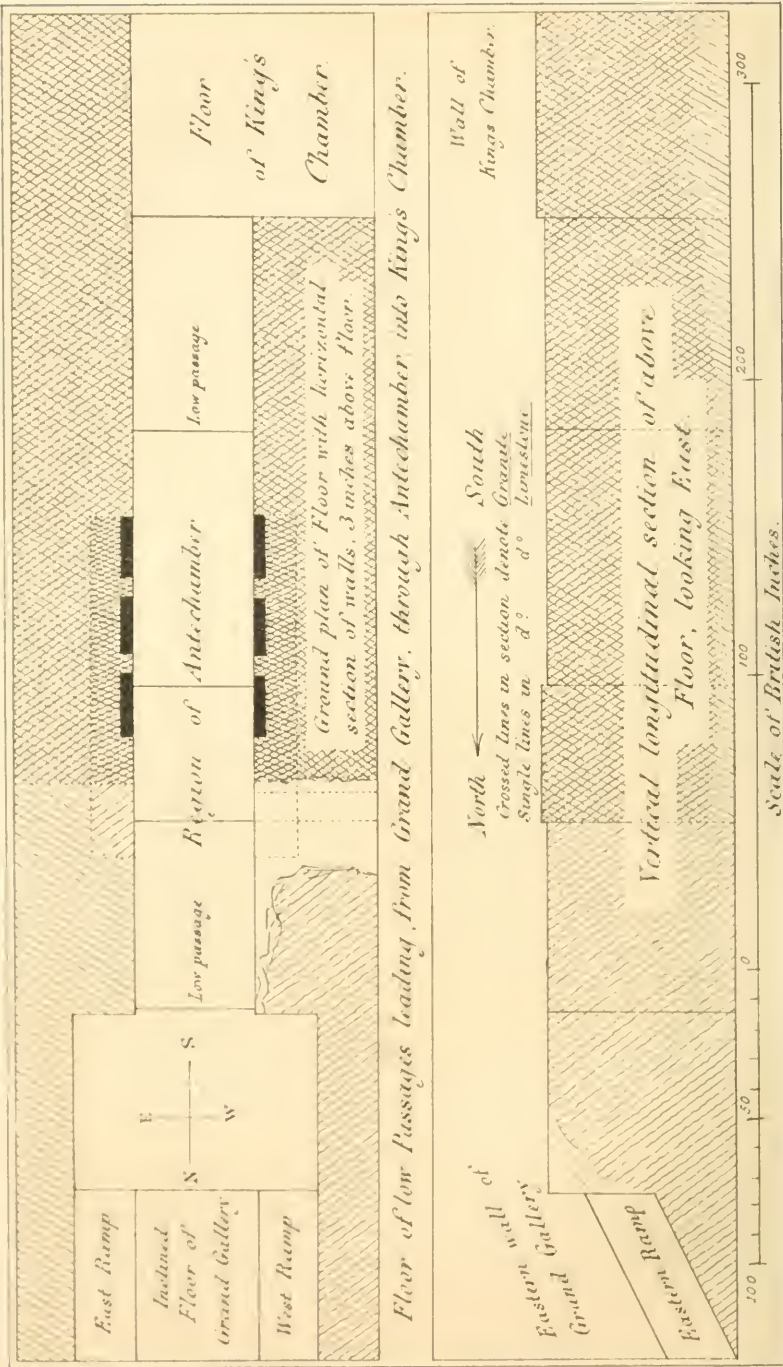 East Ramp
Inclined
Floor of
Grand Gallery
West Ramp
N
E
W
S
Low passage
Region of Antechamber
Low passage
Floor
of King's
Chamber
Ground plan of Floor with horizontal
section of walls, 3 inches above floor.
Floor of low Passages leading from Grand Gallery, through Antechamber, into King's Chamber.
Eastern wall of
Grand Gallery
Eastern Ramp
North
South
Crossed lines in section denote Granite
Single lines in dº. dº Limestone
Wall of
Kings Chamber
Vertical longitudinal section of above
Floor, looking East.
100
50
0
100
200
300
Scale of British Inches